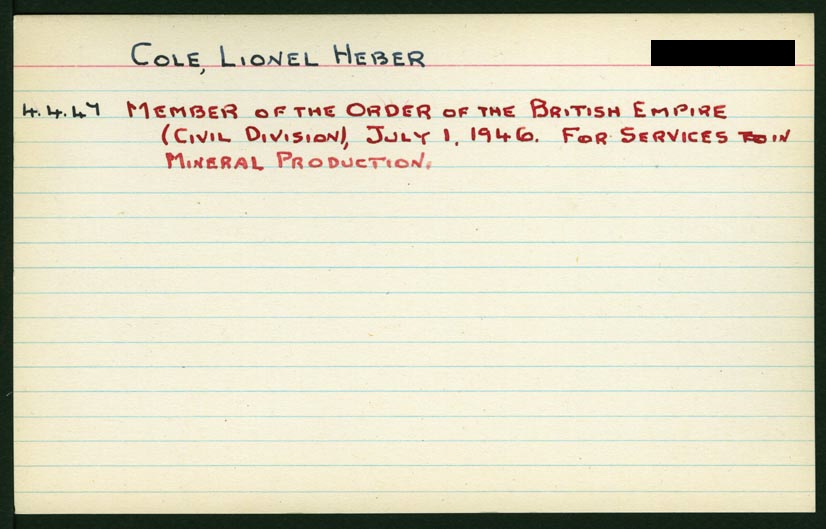 COLE, LIONEL HEBER
4.4.47 MEMBER OF THE ORDER OF THE BRITISH EMPIRE
(CIVIL DIVISION), JULY 1, 1946. FOR SERVICES TO IN
MINERAL PRODUCTION.